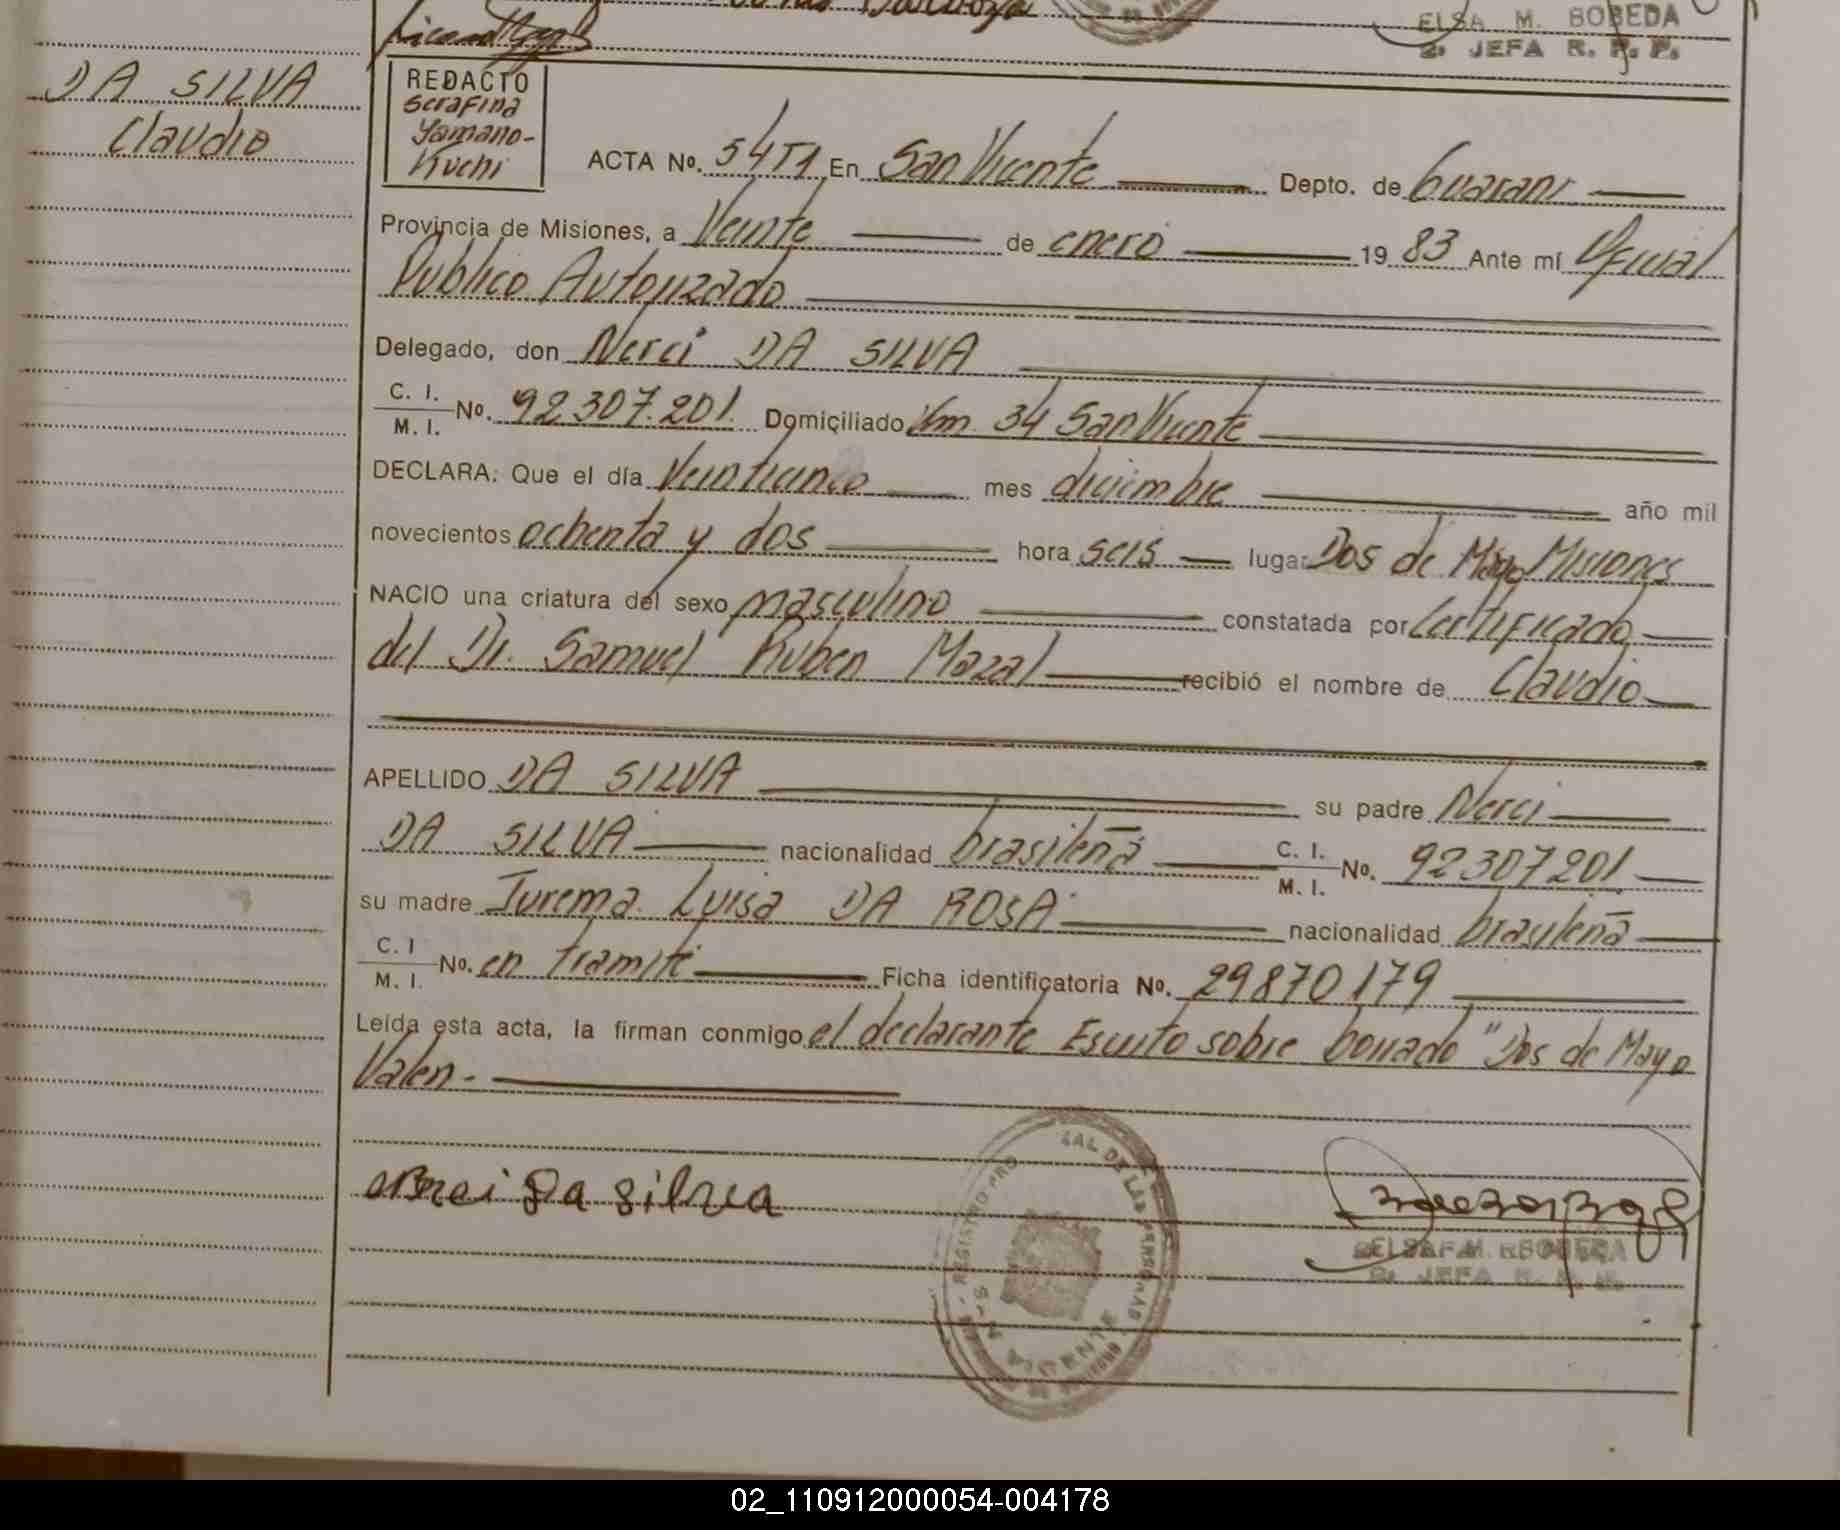 ELSA M. BOBEDA
2. JEFA R. P. P.
DA SILVA
Claudio
REDACTO
Serafina
Yamano-
Kuchi
ACTA Nº. 54T1 En San Vicente Depto. de Guarani
Provincia de Misiones, a Veinte de enero 19 83 Ante mí Oficial
Publico Autorizado
Delegado, don Nerci DA SILVA
C. I.
M. I. Nº. 92307.201. Domiciliado Km 34 San Vicente
DECLARA: Que el día Veinticinco mes diciembre año mil
novecientos ochenta y dos hora seis lugar Dos de Mayo Misiones
NACIO una criatura del sexo masculino constatada por Certificado
del Dr. Samuel Ruben Mazal recibió el nombre de Claudio
APELLIDO DA SILVA su padre Nerci
DA SILVA nacionalidad brasileña C. I. M. I. Nº. 92307201
su madre Jurema Luisa DA ROSA nacionalidad brasileña
C. I M. I. Nº. en tramite Ficha identificatoria Nº. 29870179
Leída esta acta, la firman conmigo el declarante Escrito sobre borrado "Dos de Mayo
Valen-
Nerci Da Silva
REGISTRO PRO
IAL DE LAS PERSONAS
VICENTE
ELSA M. BOBEDA
2. JEFA R. P. P.
02_110912000054-004178